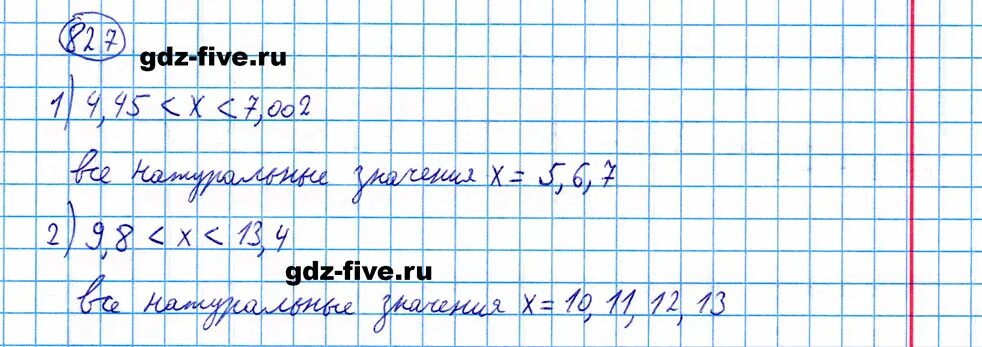 827
gdz-five.ru
1) 4,45 < x < 7,002
все натуральные значения x = 5, 6, 7
2) 9,8 < x < 13,4
gdz-five.ru
все натуральные значения x = 10, 11, 12, 13